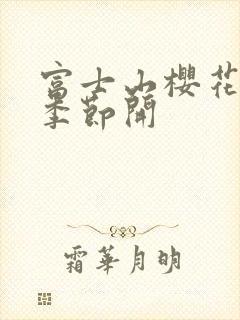 富士山櫻花
季節開
霜華月明